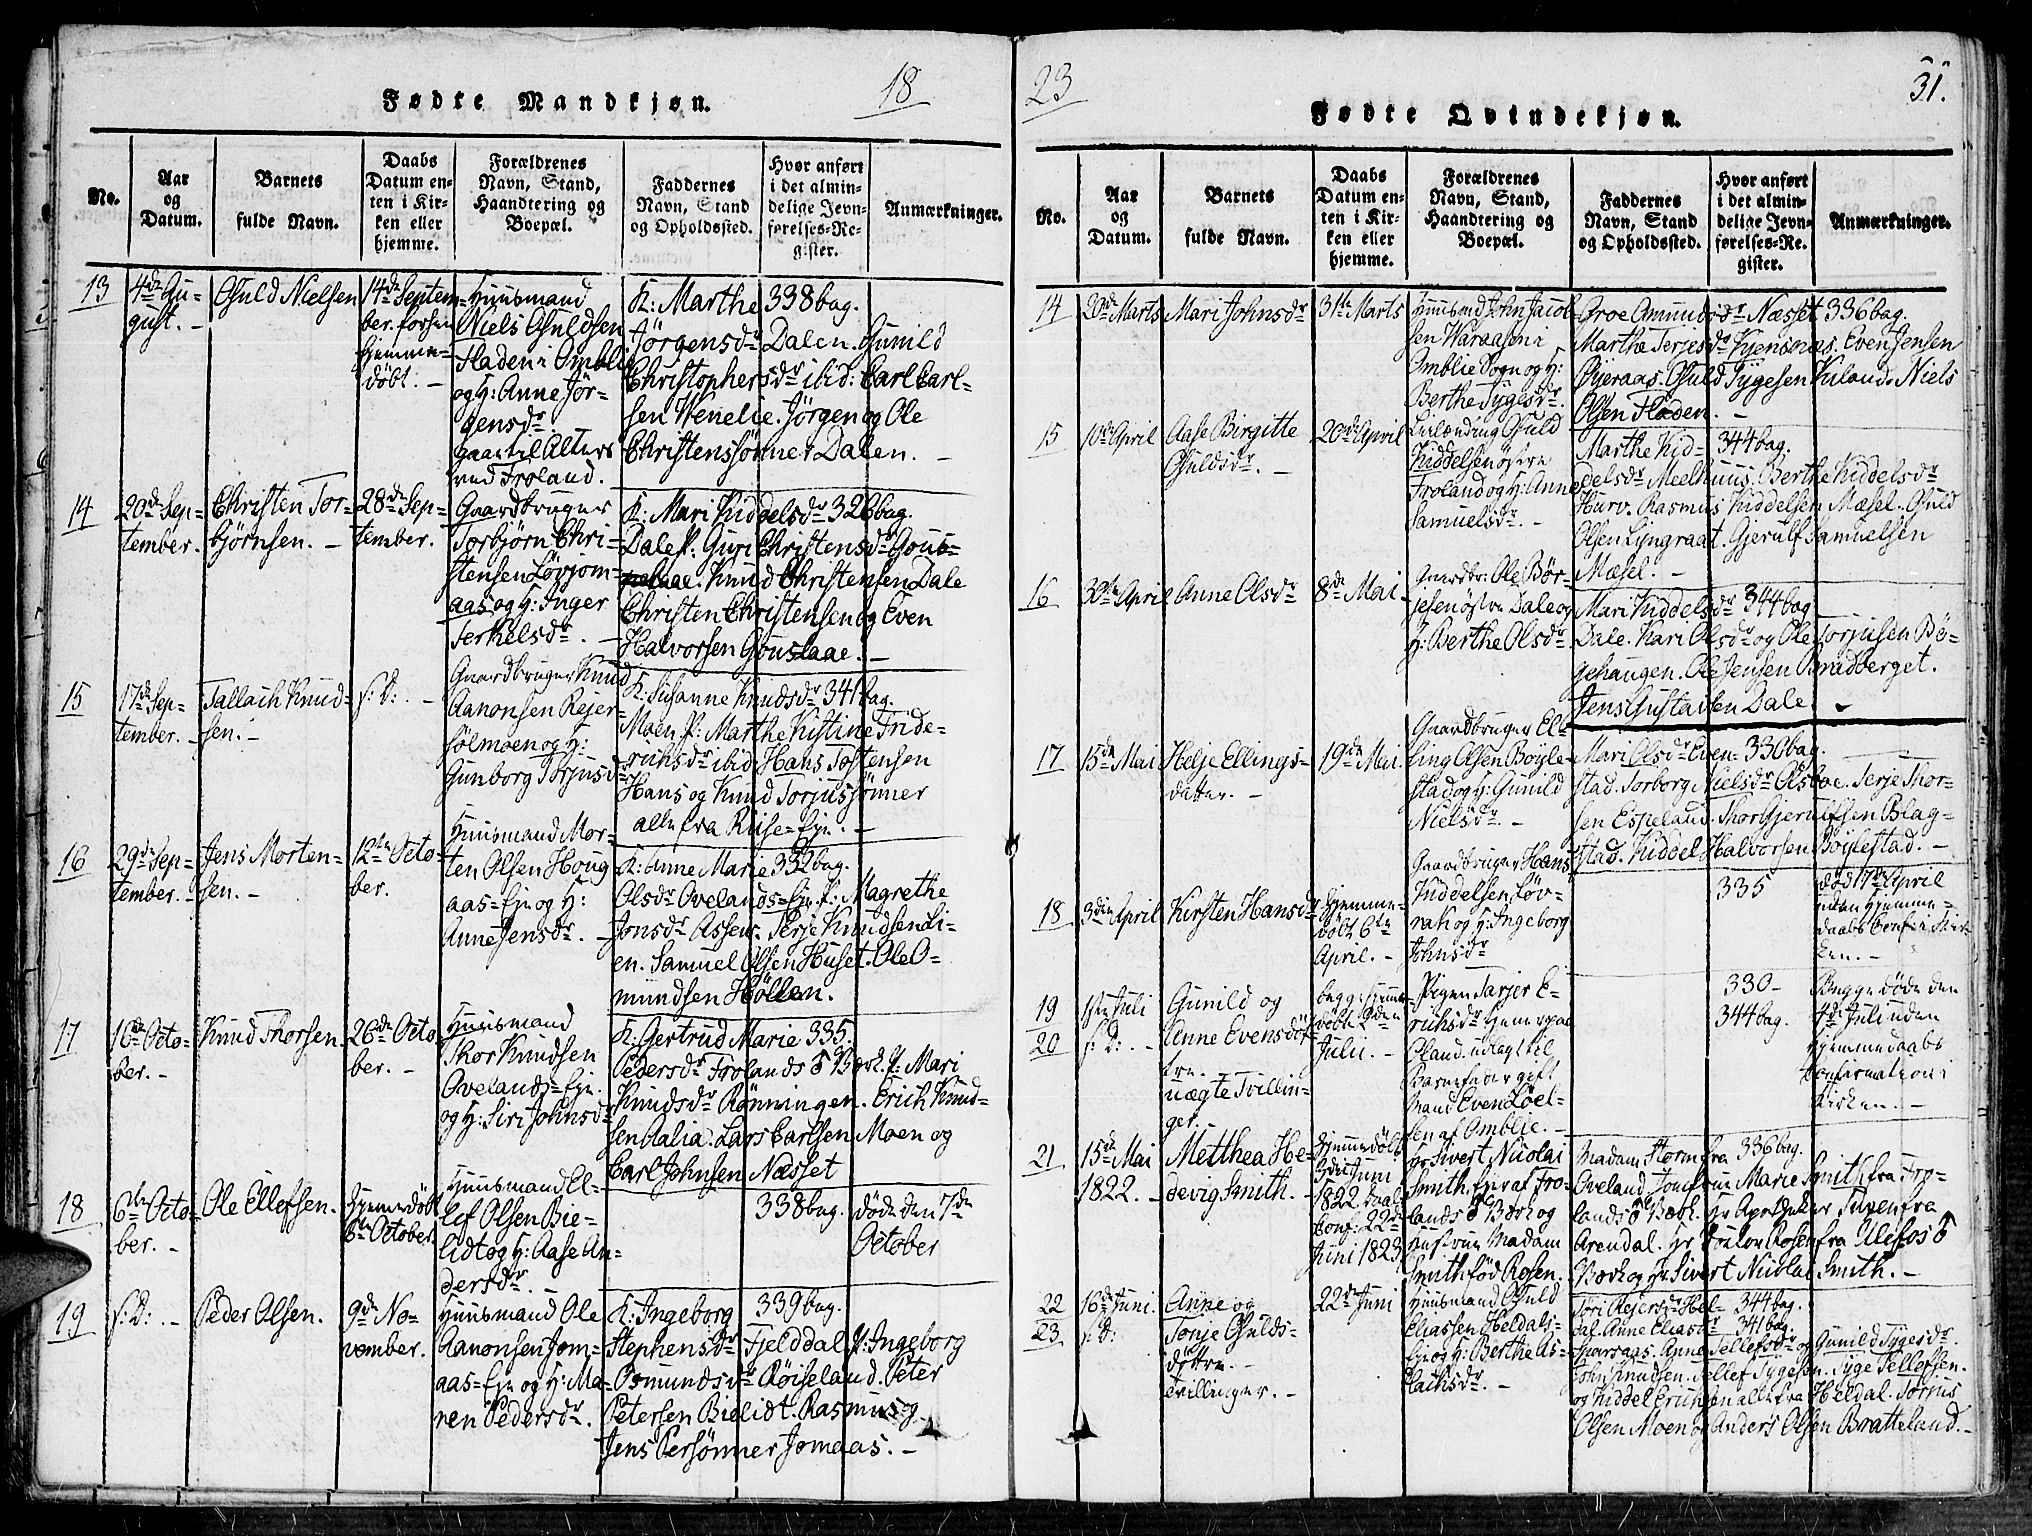 Fødte Mandkjøn.
18
No.
Aar
og
Datum.
Barnets
fulde Navn.
Daabs
Datum en-
ten i Kir-
ken eller
hjemme.
Forældrenes
Navn, Stand,
Haandtering og
Boepæl.
Faddernes
Navn, Stand
og Opholdssted.
Hvor anført
i det almin-
delige Jevn-
førelses-Re-
gister.
Anmærkninger.
13
4de Au-
gust. -
Osuld Nielsen
14de Septem-
ber. forsen
hjemme-
döbt. -
Huusmand
Niels Osuldsen
Fladen i Omblie
og H: Anne Jör-
gensdr.
gaar til Alters
ved Froland.
K: Marthe 338 bag.
Jörgensdr Dalen. Gunild
Christophersdr ibid: Carl Carl-
sen Wenelie. Jörgen og Ole
Christenssönner Dalen. -
14
20de Sep-
tember.
Christen Tor-
björnsen. -
28de Sep-
tember.
Gaardbruger
Torbjörn Chri-
stensen Lövjom-
aas og H: Inger
Terkelsdr. -
K: Mari Kiddelsdr 326 bag.
Dale P: Guri Christensdr Gous-
Knud Christensen Dale
Christen Christensen og Even
Halvorsen Gouslaae. -
15
17de Sep-
tember. -
Tallach Knud-
sen. -
s: D: -
Gaardbruger Knud
Aanonsen Rejer-
sölmoen og H:
Gunborg Torjusdr
K: Susanne Knudsdr 341 bag.
Moen P: Marthe Kistine Fride-
richsdr ibid Hans Tostensen
Hans og Knud Torjussönner
alle fra Riise-Eje. -
16
29de Sep-
tember. -
Jens Morten-
sen. -
12te Octo-
ber.
Huusmand Mor-
ten Olsen Houg-
aas-Eje og H:
Anne Jensdr. -
K: Anne Marie 332 bag.
Olsdr Ovelands-Eje P: Magrethe
Jonsdr Assen. Terje Knudsen Li-
en. Samuel Olsen Huset. Ole O-
mundsen Höllen.
17
16de Octo-
ber. -
Knud Thorsen.
26de Octo-
ber. -
Huusmand
Thor Knudsen
Ovelands-Eje
og H: Siri Johnsdr
K: Gertrud Marie 335.
Pedersdr Frolands Værk. P: Mari
Knudsdr Rönningen. Erich Knud-
sen Aalia. Lars Carlsen Moen og
Carl Johnsen Næsset
18
6te Octo-
ber. -
Ole Ellefsen.
hjemmedöbt
6te October.
Huusmand El-
lef Olsen Bie-
lidt og H: Aase An-
dersdr. -
338 bag.
döde den 7de
October
19
s: D: -
Peder Olsen.
9de No-
vember.
Huusmand Ole
Aanonsen Jom-
aas-Eje og H: Ma-
ren Pedersdr.
K: Ingeborg 339 bag.
Stephensdr Fjelddal P: Ingeborg
Osmundsdr Röiseland. Peter
Petersen Bielidt. Rasmus og
Jens Persönner Jomaas. -
23
31.
Fødte Qvindekjøn.
No.
Aar
og
Datum.
Barnets
fulde Navn.
Daabs
Datum en-
ten i Kir-
ken eller
hjemme.
Forældrenes
Navn, Stand,
Haandtering og
Boepæl.
Faddernes
Navn, Stand
og Opholdssted.
Hvor anført
i det almin-
delige Jevn-
førelses-Re-
gister.
Anmærkninger.
14
20de Marts
Mari Johnsdr
31te Marts
Huusmd John Jacob-
sen Waraasen i
Omblie Sogn og H:
Berthe Tygesdr.
Groe Omundsdr Næsset 336 bag.
Marthe Terjesdr Kjensnæs. Even Jensen
Öyeraas. Osuld Tygesen Kiland. Niels
Olsen Fladen. -
15
10de April
Aase Birgitte
Osuldsdr. -
20de April
Osuld
Kiddelsen östre
Froland og H: Anne
Samuelsdr. -
Marthe Kid- 344 bag.
delsdr Meelhuus. Berthe Kiddelsdr
Hurv. Rasmus Kiddelsen Mæsel. Osuld
Olsen Lyngraat. Gjerulf Samuelsen
Mæsel. -
16
30te April
Anne Olsdr
8de Mai
Gaardbr: Ole Bör-
jesen östre Dale og
H: Berthe Olsdr.
Mari Kiddelsdr 344 bag
Dale. Kari Olsdr og Ole Torjusen Bö-
gehaugen. Ole Jensen Bradberget.
Jens Gustavsen Dale. -
17
15de Mai
Helje Ellings-
datter. -
19de Mai
Gaardbruger El-
ling Olsen Böyle-
stad og H: Gunild
Nielsdr. -
Mari Olsdr Even- 330 bag.
stad. Torborg Nielsdr Olsboe. Terje Thor-
sen Espeland. Thor Gjerulfsen Blag-
stad. Kiddel Halvorsen Böylestad. -
18
3die April
Kirsten Hansdr
Hjemme-
döbt 6te
April. -
Gaardbruger Hans
Kiddelsen Löv-
rak og H: Ingeborg
Johnsdr
335
död 17de April
uden Hjemme-
daabs Conf: i Kir-
ken. -
19
20
1ste Juli
s: D: -
Gunild og
Anne Evensdöt-
tre. -
uægte Tvillin-
ger.
begge hjemme-
döbt 2den
Julii. -
Pigen Tarjer E-
richsdr hjemme paa
Oland. udlagt til
Barnefader gift
Mand Even Löel-
sen af Omblie. -
330 -
344 bag.
Begge döde den
4de Juli uden
hjemmedaabs
Confirmation i
Kirken. -
21
15de Mai
1822. -
Metthea He-
devig Smith. -
Hjemmedöbt
3die Juni
1822. Daabs
Conf: 22de
Juni 1823
Hr Sivert Nicolai
Smith. Ejer af Fro-
lands Værk og
Hustrue Madam
Smith. föd Rosen.
Madam Storm fra 336 bag.
Oveland. Jomfrue Marie Smith. fra Fro-
lands Værk. Hr Apotheker Tuven fra
Arendal. Hr Rosen fra Ulefos
Værk og Hr Sivert Nicolai Smith. -
22
23
16de Juni.
s: D:
Anne og
Tonje Osulds-
döttre. -
Tvillinger. -
22de Juni
Huusmand Osuld
Eliassen Heldals-
Eje og H: Berthe As-
lachsdr. -
Töri Rejersdr Hel- 344 bag.
dal. Anne Eliasdr 341 bag.
Anne Tellefsdr og Gunild Tygesdr.
John Knudsen. Tellef Tygesen. Tyge Tellefsen.
og Kiddel Erichsen alle fra Heldal. Torjus
Olsen Moen og Anders Olsen Bratteland. -